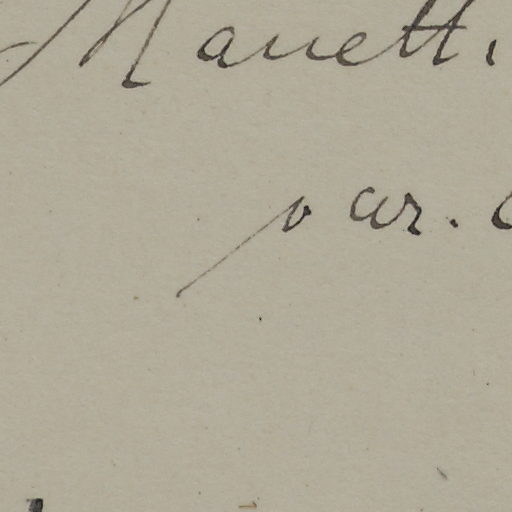 Manetti
var.